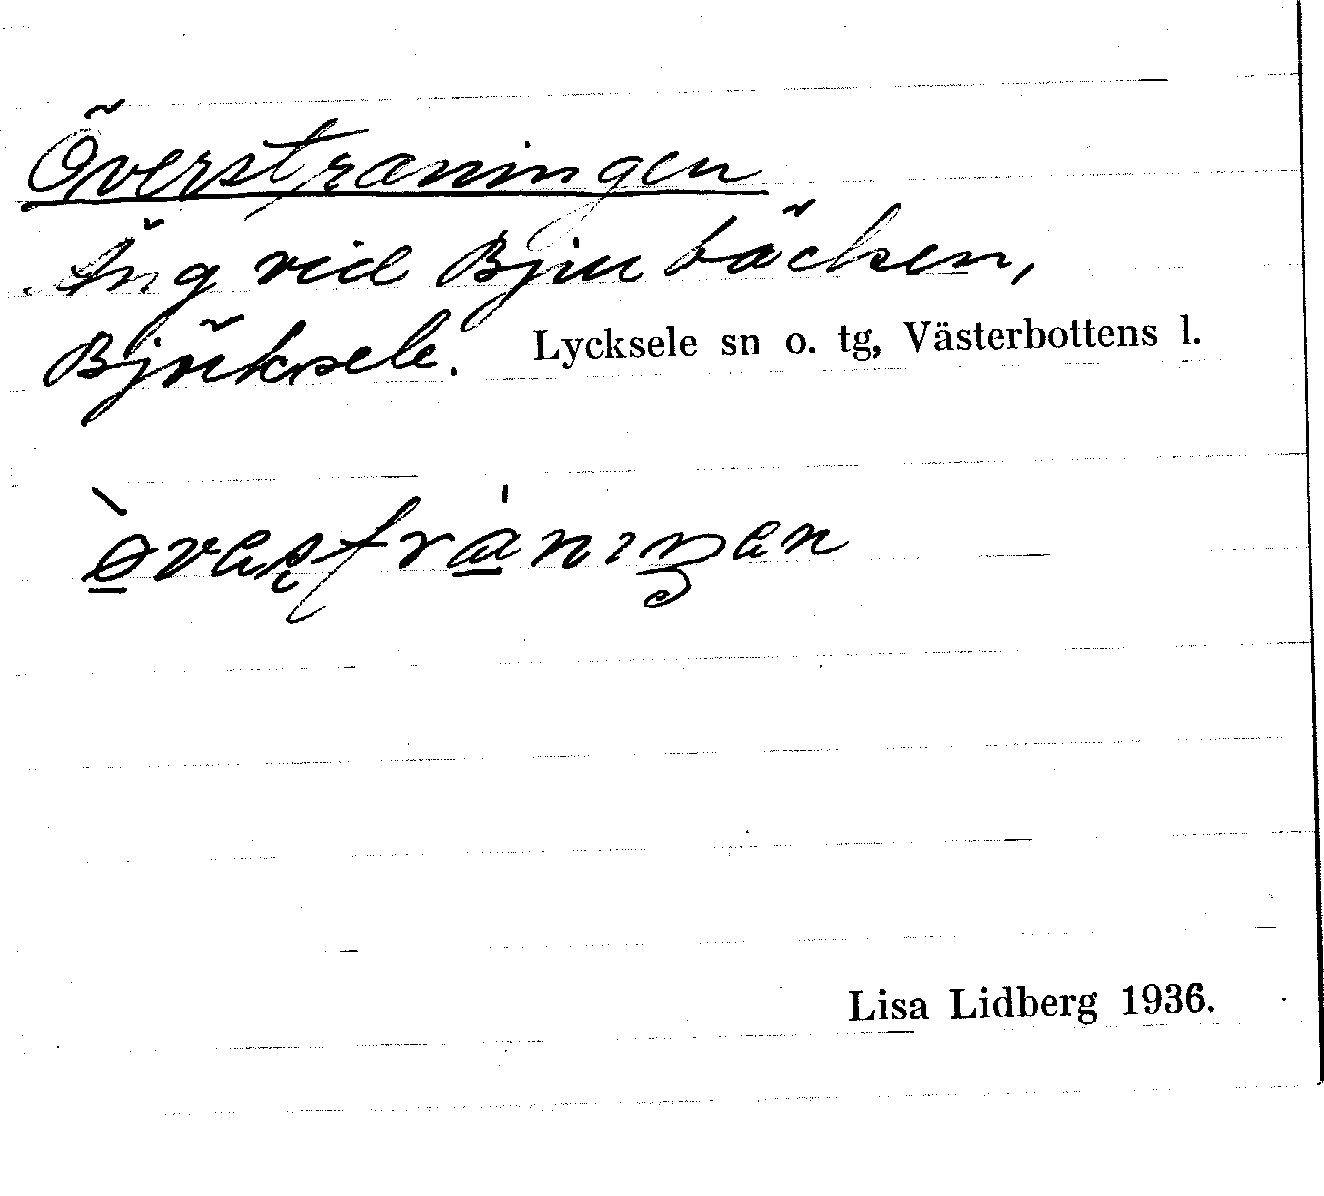 Överstraningen
Äng vid Bjurbäcken,
Björksele. Lycksele sn o. tg, Västerbottens l.
Lisa Lidberg 1936.